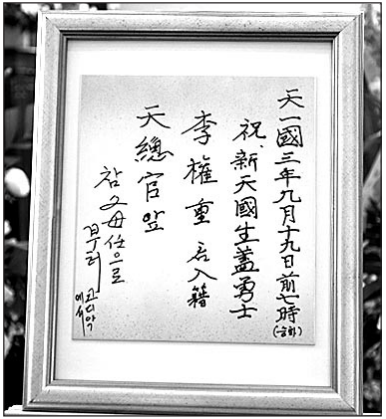 天一國三年九月十九日前七時
(金剛)
祝, 新天國生蓋勇士
李權重 名入籍
天總官앞
참父母仕으로
부터
코디악
에서